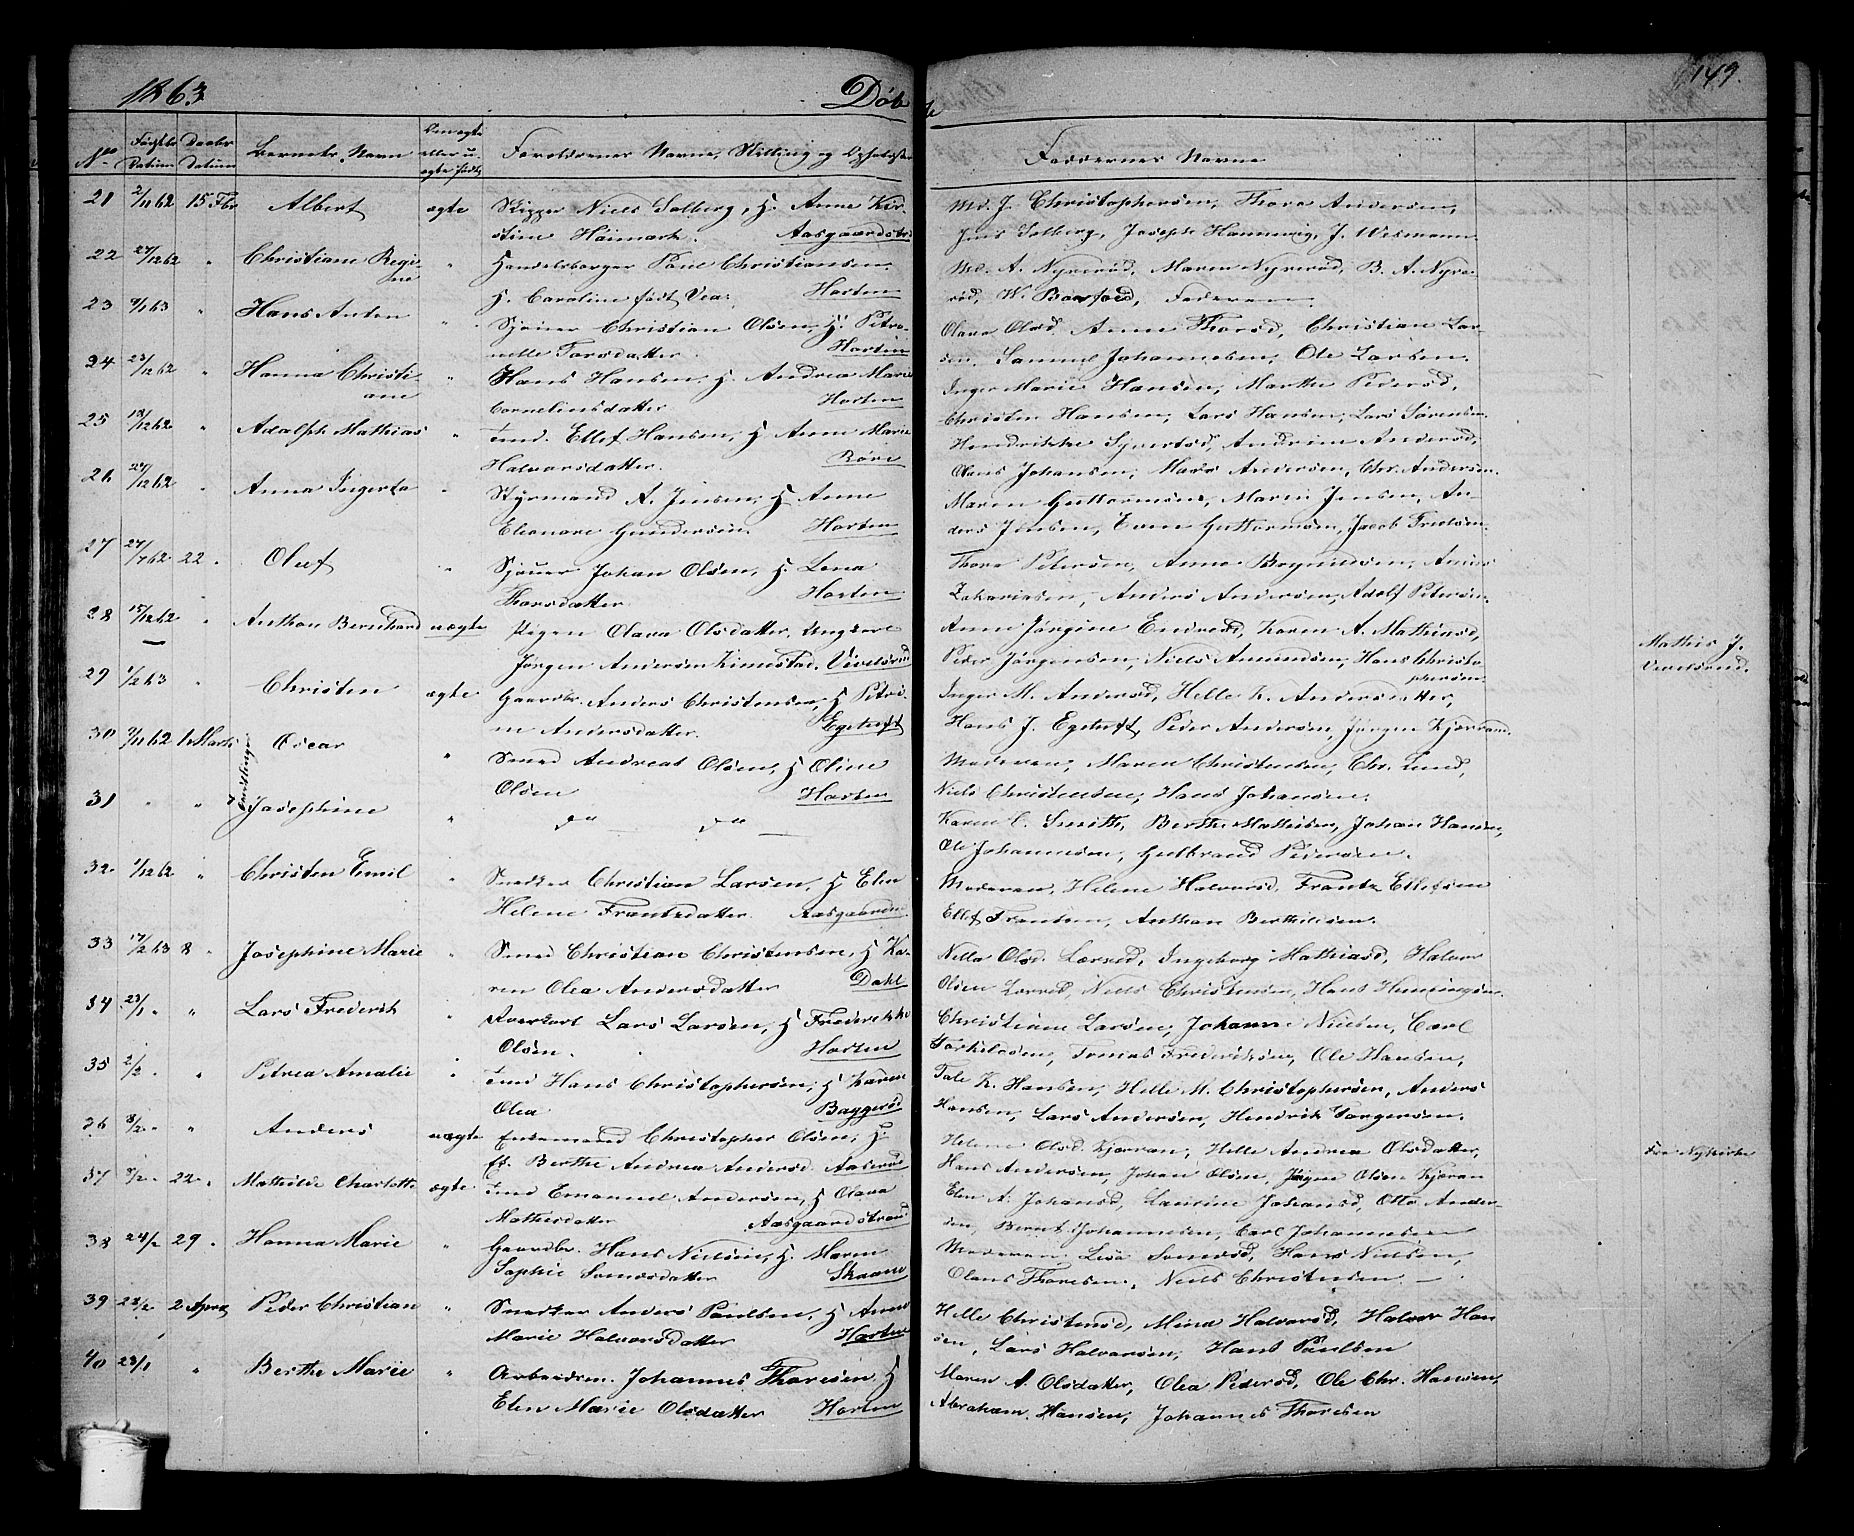 1863
Døbte
149.
No
Fødsels Datum
Daabs Datum
Barnets Navn
ægte eller u-ægte født
Forældrenes Navne, Stilling og
Faddernes Navne
21 2/11 62 15 Fbr Albert ægte Skipper Niels Solberg, H. Anne Kir-
stine Aasgaardstr
J. Christophersen, Thora Andersen,
Jens Solberg, Joseph J. Wismann
22 27/12 62 " Christiane Regi-
ne
" Handelsborger Poul Christiansen
H. Caroline født Horten
A. Nyrerød, Maren Nyrerød, B. A. Nyre-
rød, W. Faderen
23 9/1 63 " Hans Anton " Sjouer Christian Olsen, H. Petro-
nelle Torsdatter Horten
Olava Olsd. Anne Thorsd, Christian Lar-
sen, Samuel Johannesen, Ole Larsen
24 23/12 62 " Hanna Christi-
ane
" Hans Hansen, H. Andrea Marie
Corneliusdatter Horten
Inger Marie Hansen, Marthe Pedersd,
Christen Hansen, Lars Hansen, Lars Sørensen
25 18/12 62 " Adolph Mathias " Tmd. Ellef Hansen, H. Anne Marie
Halvorsdatter. Røre
Hendrikke Syvertsd, Andrine Andersd,
Olaus Johansen, Mads Andersen, Chr. Andersen
26 27/12 62 " Anna Ingerta " Styrmand A. Jensen, H. Anne
Eleonore Gundersen Horten
Maren Guttormsen, Maren Jensen, An-
ders Jensen, Even Guttormsen, Jacob
27 27/7 62 22 " Oluf " Sjouer Johan Olsen, H. Lena
Thorsdatter. Horten
Thora Petersen, Anne
Zachariasen, Anders Andersen, Adolf Petersen
28 15/12 62 " Anthon Bernhard uægte Pigen Olava Olsdatter, Ungkarl
Jørgen Andersen
Anne Jørgine Karen A. Mathiasd,
Peder Jørgensen, Niels Amundsen, Hans Christo-
phersen
Mathis J.
29 1/2 63 " Christen ægte Gaardbr. Anders Christensen, H. Petri-
ne Andersdatter.
Inger M. Andersd, Helle K. Andersdatter,
Hans J. Peder Andersen, Jørgen
30 7/11 62 1 Marts Oscar
Tvillinger
" Smed Andreas Olsen, H. Oline
Olsen Horten
Moderen, Maren Christensen, Chr. Lund,
Niels Christensen, Hans Johansen.
31 " " Josephine " do do
Karen C. Smith, Berthe Mathisen, Johan Hansen,
Ole Johannesen, Gulbrand Pedersen.
32 1/12 62 " Christen Emil " Snedker Christian Larsen, H. Elen
Helene Frantzdatter. Aasgaarden
Moderen, Helene Halvorsd, Frantz Ellefsen
Ellef Frantzen, Anthon Berthilsen.
33 17/2 63 8 " Josephine Marie " Smed Christian Christensen, H. Ka-
ren Olea Andersdatter Dahl
Nella Olsd. Ingeborg Mathiasd, Halvor
Olsen Niels Christensen, Hans Henningsen
34 23/1 " " Lars Frederik " Lars Larsen, H. Frederikke
Olsen. Horten
Christiane Larsen, Johanne Nielsen, Carl
Torkildsen, Tomas Frederiksen, Ole Hansen,
35 2/2 " Petrea Amalie " Tmd Hans Christophersen, H. Karen
Olea Baggerød
Tale K. Hansen, Helle M. Christophersen, Anders
Hansen, Lars Andersen, Hendrik Torgersen.
36 8/2 " " Anders uægte Christopher Olsen, H.
Berthe Andrea Andersd.
Helene Olsd. Helle Andrea Olsdatter,
Hans Andersen, Johan Olsen, Olsen
Fra Nykirke
37 8/2 " 22 " Mathilde Charlotte ægte Tmd Emanuel Andersen, H. Olava
Mathisdatter Aasgaardstrand
Elen A. Johansd, Laurine Johansd, Otto Ander-
sen, Bernt Johannesen, Carl Johannesen
38 24/2 29 " Hanna Marie " Gaardbr. Hans Nielsen, H. Maren
Sophie
Moderen, Hans Nielsen,
Olaus Thoresen, Niels Christensen
39 22/2 2 April Peder Christian " Snedker Anders Paulsen, H. Anne
Marie Halvorsdatter Horten
Helle Christensd, Mina Halvorsd, Halvor Han-
sen, Lars Halvorsen, Hans Paulsen
40 23/1 " Berthe Marie " Arbeidsm. Johannes Thoresen H
Elen Marie Olsdatter Horten
Maren A. Olsdatter, Olea Pedersd, Ole Chr. Hansen,
Abraham Hansen, Johannes Thoresen